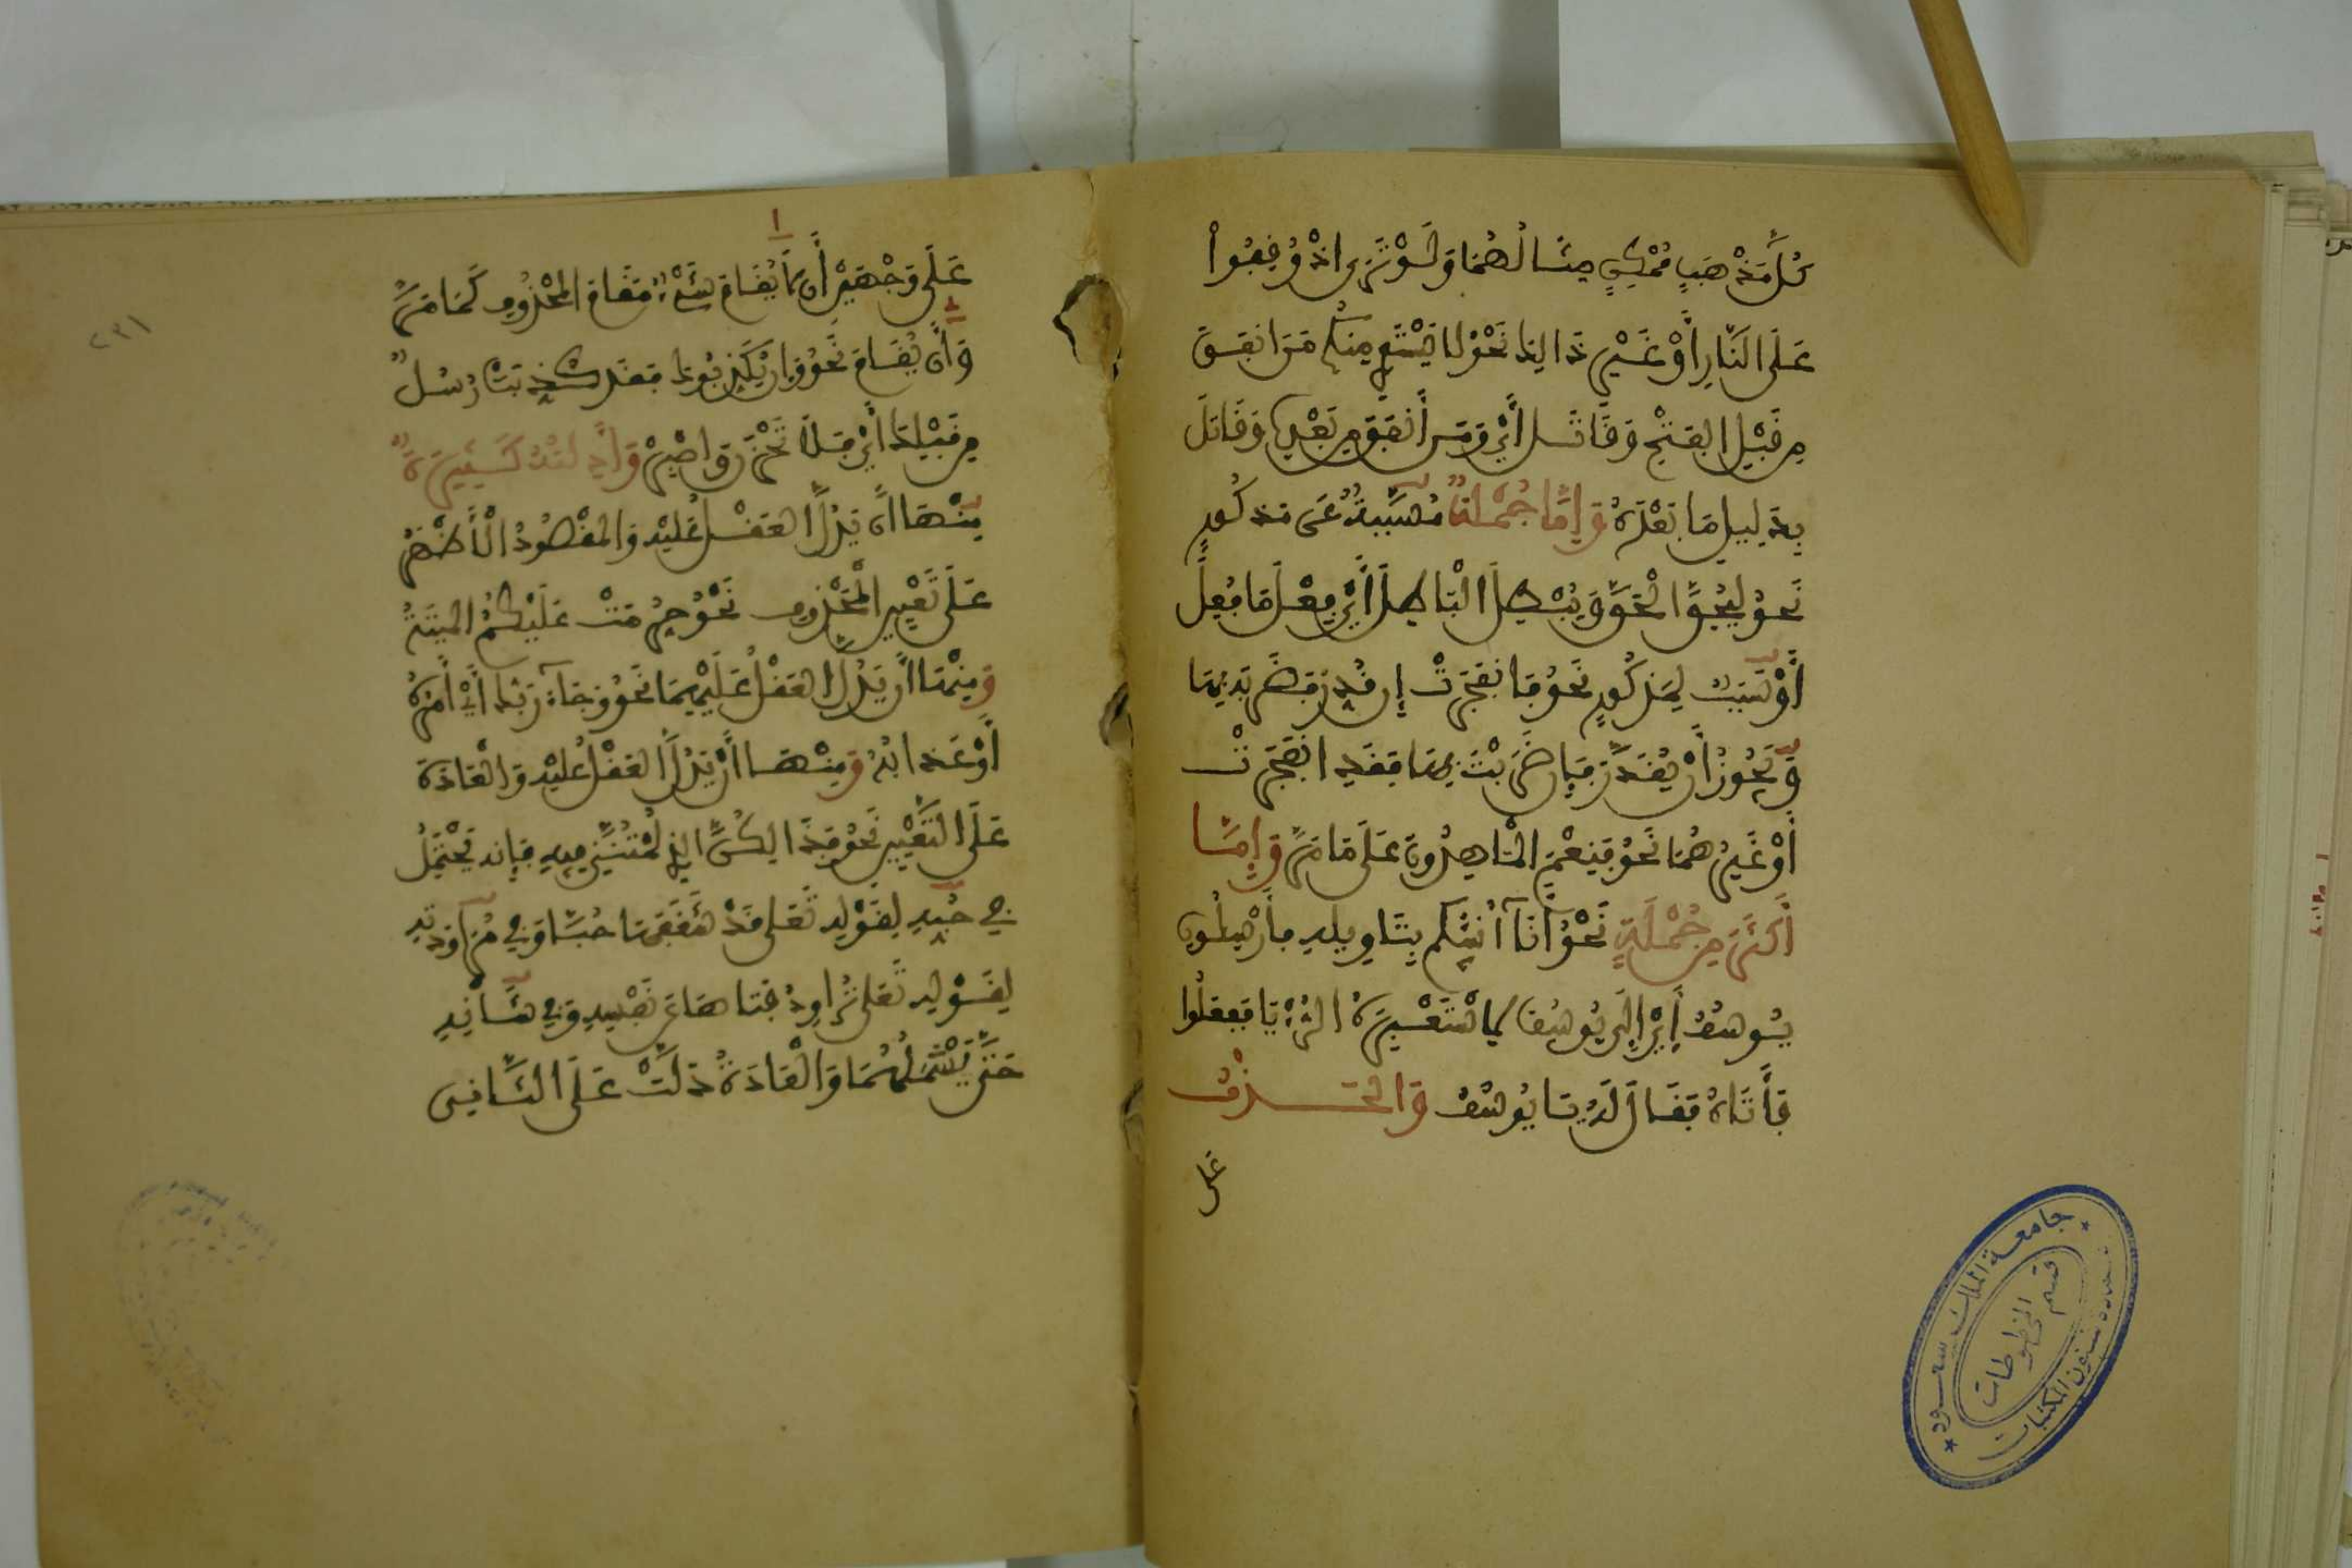 كُلَّ مَذْهَبٍ مُمْكِنٍ مِثَالُهُمَا وَلَوْ تَرَى إِذْ وُقِفُواْ
عَلَى النَّارِ أَوْ غَيْرِ ذَالِكَ نَحْوُ لَا يَسْتَوِي مِنكُم مَّنَ انفَقَ
مِن قَبْلِ الْفَتْحِ وَقَاتَلَ أَيْ وَمَن أَنفَقَ مِن بَعْدِهِ وَقَاتَلَ
بِدَلِيلِ مَا بَعْدَهُ وَإِمَّا جُمْلَةٌ مُسَبَّبَةٌ عَن مَذكُورٍ
نَحوُ لِيُحِقَّ الْحَقَّ وَيُبْطِلَ الْبَاطِلَ أَيْ فَعَلَ مَا فَعَلَ
أَوْ سَبَبٌ لِمَذكُورٍ نَحْوُ فَانفَجَرَتْ إِن قُدِّرَ فَضَرَبَهُ بِهَا
وَيَجُوزُ أَنْ يُقَدَّرَ فَإِن ضَرَبْتَ بِهَا فَقَدِ انفَجَرَتْ
أَوْ غَيْرُهُمَا نَحْوُ فَنِعْمَ الْمَاهِدُونَ عَلَى مَا مَرَّ وَإِمَّا
أَكْثَرَ مِن جُمْلَةٍ نَحْوُ أَنَآ أُنَبِّئُكُم بِتَاوِيلِهِ فَأَرْسِلُونِ
يُوسُفُ أَيْ إِلَى يُوسُفَ لِأَسْتَعْبِرَهُ الرُّؤْيَا فَفَعَلُوا
فَأَتَاهُ فَقَالَ لَهُ يَا يُوسُفُ وَالْحَذْفُ
على
٢٣١
١
عَلَى وَجْهَيْنِ أَن لَا يُقَامَ شَيْءٌ مَقَامَ الْمَحْذُوفِ كَمَا مَرَّ
٢
وَأَن يُقَامَ نَحْوُ وَإِن يُكَذِّبُوكَ فَقَد كُذِّبَتْ رُسُلٌ
مِن قَبْلِكَ أَيْ فَلَا تَحْزَن وَاصْبِرْ وَأَدِلَّتُهُ كَثِيرَةٌ
مِنْهَا أَن يَدُلَّ الْعَقْلُ عَلَيْهِ وَالْمَقْصُودُ الْأَظْهَرُ
عَلَى تَعْيِينِ الْمَحْذُوفِ نَحْوُ حُرِّمَتْ عَلَيْكُمُ الْمَيْتَةُ
وَمِنْهَا أَن يَدُلَّ الْعَقْلُ عَلَيْهِمَا نَحْوُ وَجَآءَ رَبُّكَ أَيْ أَمْرُهُ
أَوْ عَذَابُهُ وَمِنْهَا أَنْ يَدُلَّ الْعَقْلُ عَلَيْهِ وَالْعَادَةُ
عَلَى التَّعْيِينِ نَحْوُ فَذَالِكُنَّ الذِي لُمْتُنَّنِي فِيهِ فَإِنه يَحْتَمِلُ
فِي حُبِّهِ لِقَوْلِهِ تَعَلى قَدْ شَغَفَهَا حُبّاً وَفِي مُرَاوَدَتِهِ
لِقَوْلِهِ تَعَلى تُرَاوِدُ فَتَاهَا عَن نَفْسِهِ وَفِي شَأْنِهِ
حَتَّى يَشْمَلَهُمَا وَالْعَادَةُ دَلَّتْ عَلَى الثَّانِي
جامعة الملك سعود
قسم المخطوطات
عمادة شئون المكتبات